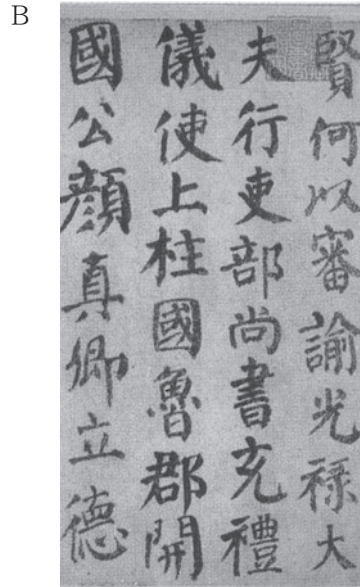 B
賢何以審諭光祿大
夫行吏部尚書充禮
儀使上柱國魯郡開
國公顏真卿立德